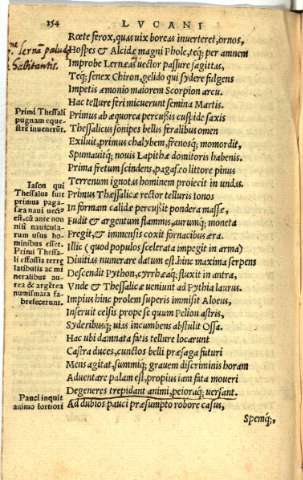 254 LVCANI
Rœte ferox, quas uix boreas inuerteret, ornos,
Hospes & Alcidæ magni Phole, teq; per amnem
Improbe Lernæas uector passure sagittas,
Teq; senex Chiron, gelido qui sydere fulgens
Impetis Aemonio maiorem Scorpion arcu.
Hac tellure feri micuerunt semina Martis.
Primus ab æquorea percussis cuspide saxis
Thessalicus sonipes bellis feralibus omen
Exiluit, primus chalybem, frenosq; momordit,
Spumauitq; nouis Lapithæ domitoris habenis.
Prima fretum scindens, pagasæo littore pinus
Terrenum ignotas hominem proiecit in undas.
Primus Thessalicæ rector telluris Ionos
In formam calidæ percussit pondera massæ,
Fudit & argentum flammis, aurumq; moneta
Fregit, & immensis coxit fornacibus æra.
Illic (quod populos scelerata impegit in arma)
Diuitias numerare datum est. hinc maxima serpens
Descendit Python, cyrrhæaq; fluxit in antra,
Vnde & Thessalicæ ueniunt ad Pythia laurus.
Impius hinc prolem superis immisit Aloeus,
Inseruit celsis prope se quum Pelion astris,
Syderibusq; uias incumbens abstulit Ossa.
Hac ubi damnata fatis tellure locarunt
Castra duces, cunctos belli præsaga futuri
Mens agitat, summiq; grauem discriminis horam
Aduentare palam est, propius iam fata moueri
Degeneres trepidant animi, peioraq; uersant.
Ad dubios pauci præsumpto robore casus,
Spemq;,
Lernā palude
habitantis.
Primi Thessali
pugnam eque
stre inuenerūt.
Iason qui
Thessalus fuit
primus paga-
sæa naui uectus
est. cū ante non
nisi nauicula-
rum usus ho-
minibus esset.
Primi Thessa-
li effossis terræ
latibulis ac mi
neralibus au-
rea & argētea
numismata fa-
brefecerunt.
Pauci inquit
animo fortiori